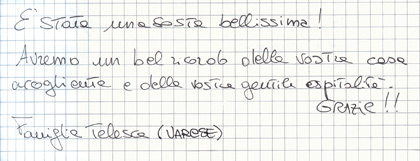 E' stata una sosta bellissima!
Avremo un bel ricordo della vostra casa
accogliente e della vostra gentile ospitalità.
GRAZIE!!
Famiglia Telesca (VARESE)